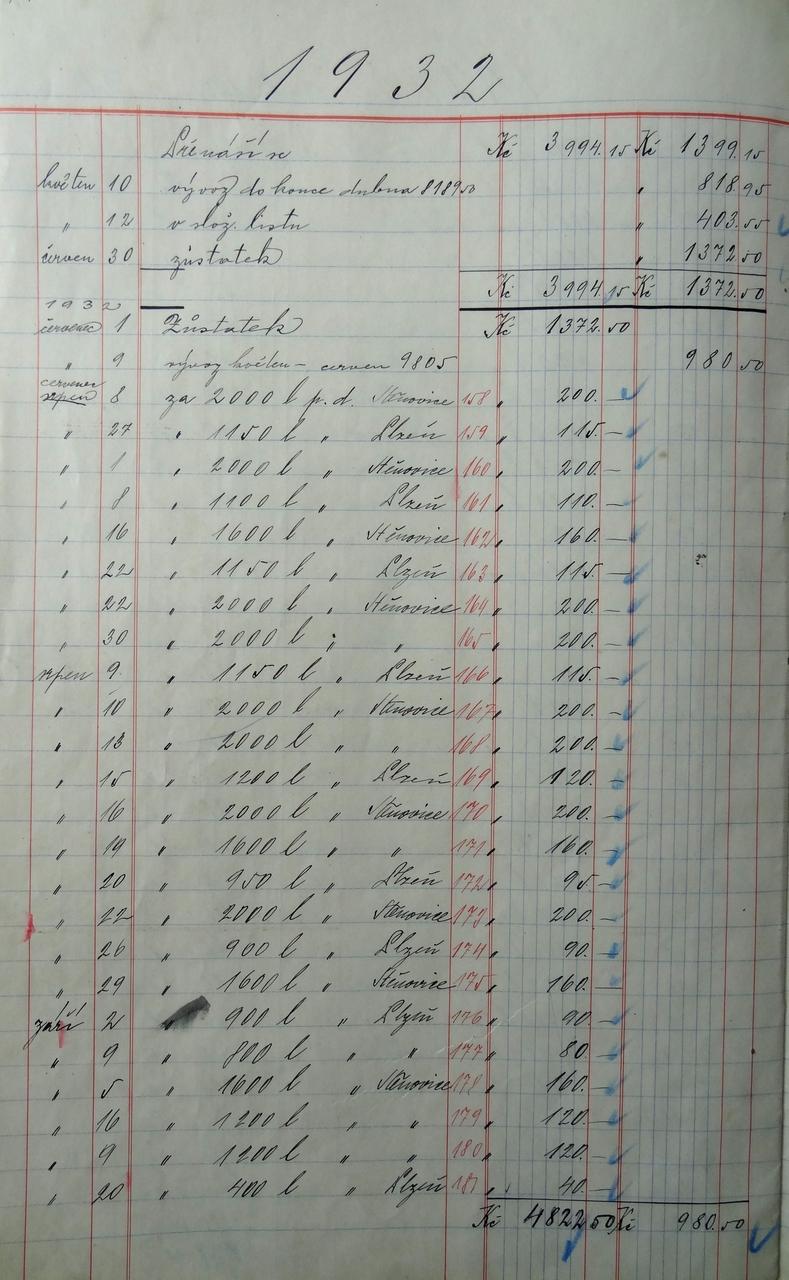 1932
Přenáší se Kč 3994.15 Kč 1399.15
květen 10 vývoz do konce dubna 8189.50 " 818.95
" 12 v slož. listu " 403.55
červen 30 zůstatek " 1372.50
Kč 3994.15 Kč 1372.50
1932
červenec 1 Zůstatek Kč 1372.50
" 9 vývoz květen - červen 9805 980.50
červenec
srpen 8 za 2000 l p. d. Štěnovice 158 " 200.—
" 27 " 1150 l " Plzeň 159 " 115.—
" 1 " 2000 l " Štěnovice 160 " 200.—
" 8 " 1100 l " Plzeň 161 " 110.—
" 16 " 1600 l " Štěnovice 162 " 160.—
" 22 " 1150 l " Plzeň 163 " 115.—
" 22 " 2000 l " Štěnovice 164 " 200.—
" 30 " 2000 l " " 165 " 200.—
srpen 9 " 1150 l " Plzeň 166 " 115.—
" 10 " 2000 l " Štěnovice 167 " 200.—
" 13 " 2000 l " " 168 " 200.—
" 15 " 1200 l " Plzeň 169 " 120.—
" 16 " 2000 l " Štěnovice 170 " 200.—
" 19 " 1600 l " " 171 " 160.—
" 20 " 950 l " Plzeň 172 " 95.—
" 22 " 2000 l " Štěnovice 173 " 200.—
" 26 " 900 l " Plzeň 174 " 90.—
" 29 " 1600 l " Štěnovice 175 " 160.—
září 2 " 900 l " Plzeň 176 " 90.—
" 9 " 800 l " " 177 " 80.—
" 5 " 1600 l " Štěnovice 178 " 160.—
" 16 " 1200 l " " 179 " 120.—
" 9 " 1200 l " " 180 " 120.—
" 20 " 400 l " Plzeň 181 " 40.—
Kč 4822.50 Kč 980.50